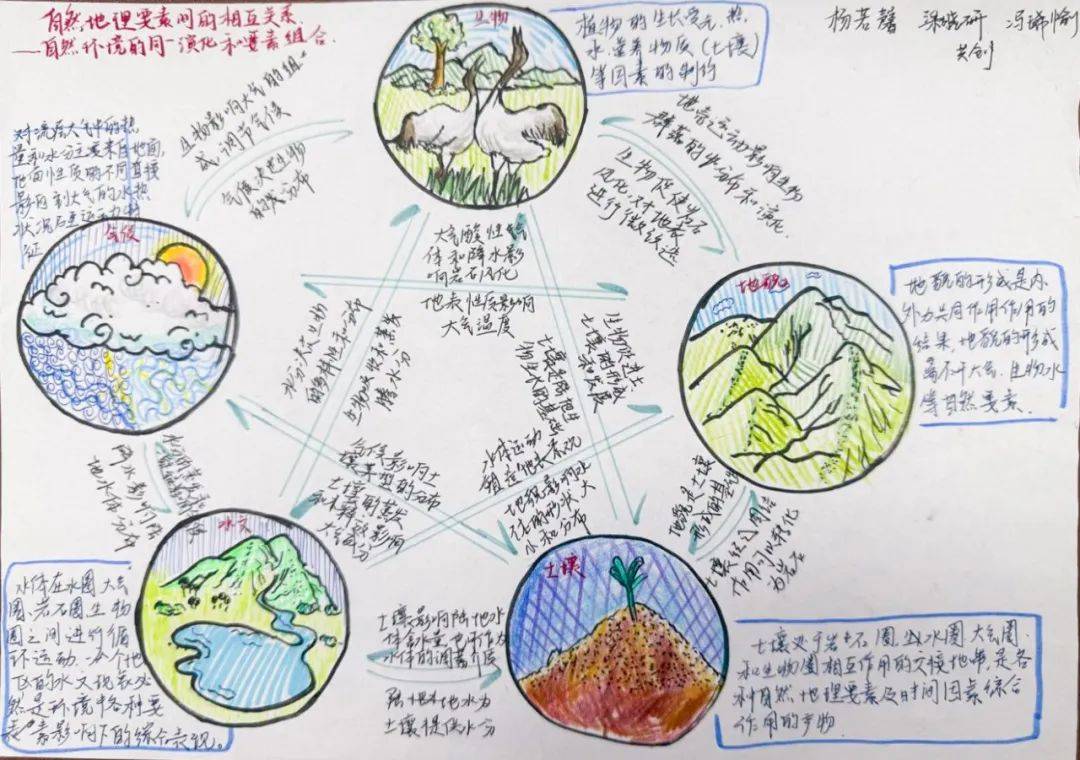 自然地理要素间的相互关系
——自然环境的同一演化和要素组合.
杨若馨 梁晓研
共创
生物
植物的生长受光、热、
水、营养物质(土壤)
等因素的制约
生物影响大气的组
成,调节气候
气候决定生物
的成分布
地壳运动影响生物
群落的分布和演化
生物促使岩石
风化,对地表
进行微改造
对流层大气中的热
量和水分主要来自地面,
地面性质的不同直接
影响到大气的水热
状况
征
气候
大气酸性气
体和降水影
响岩石风化
地表性质影响
大气温度
地貌
地貌的形成是内、
外力共同作用作用的
结果,地貌的形成
离不开大气、生物、水
等自然要素.
水分
的多样性和分布
生物吸收水蒸发
腾水分
生物促进土
壤的形成
和发展
土壤是陆地生
物生长的基础
气候影响土
壤类型的分布
土壤的蒸发
和释放影响
大气成分
水体运动
塑造地表形态
地貌影响水
体的形状、大
小和分布
地貌是土壤
形成的基础
土壤经过固结
作用可以转化
为岩石
降水影响
地水体分布
水文
水体在水圈、大气
圈、岩石圈、生物
圈之间进行循
环运动.一个地
区的水文地表必
然是环境中各种要
素影响下的综合表现。
土壤影响陆地水
体含水量,也可作为
水体的调蓄介质
陆地水为
土壤提供水分
土壤
土壤处于岩石圈、水圈、大气圈
和生物圈相互作用的交换地带,是各
种自然地理要素及时间因素综合
作用的产物